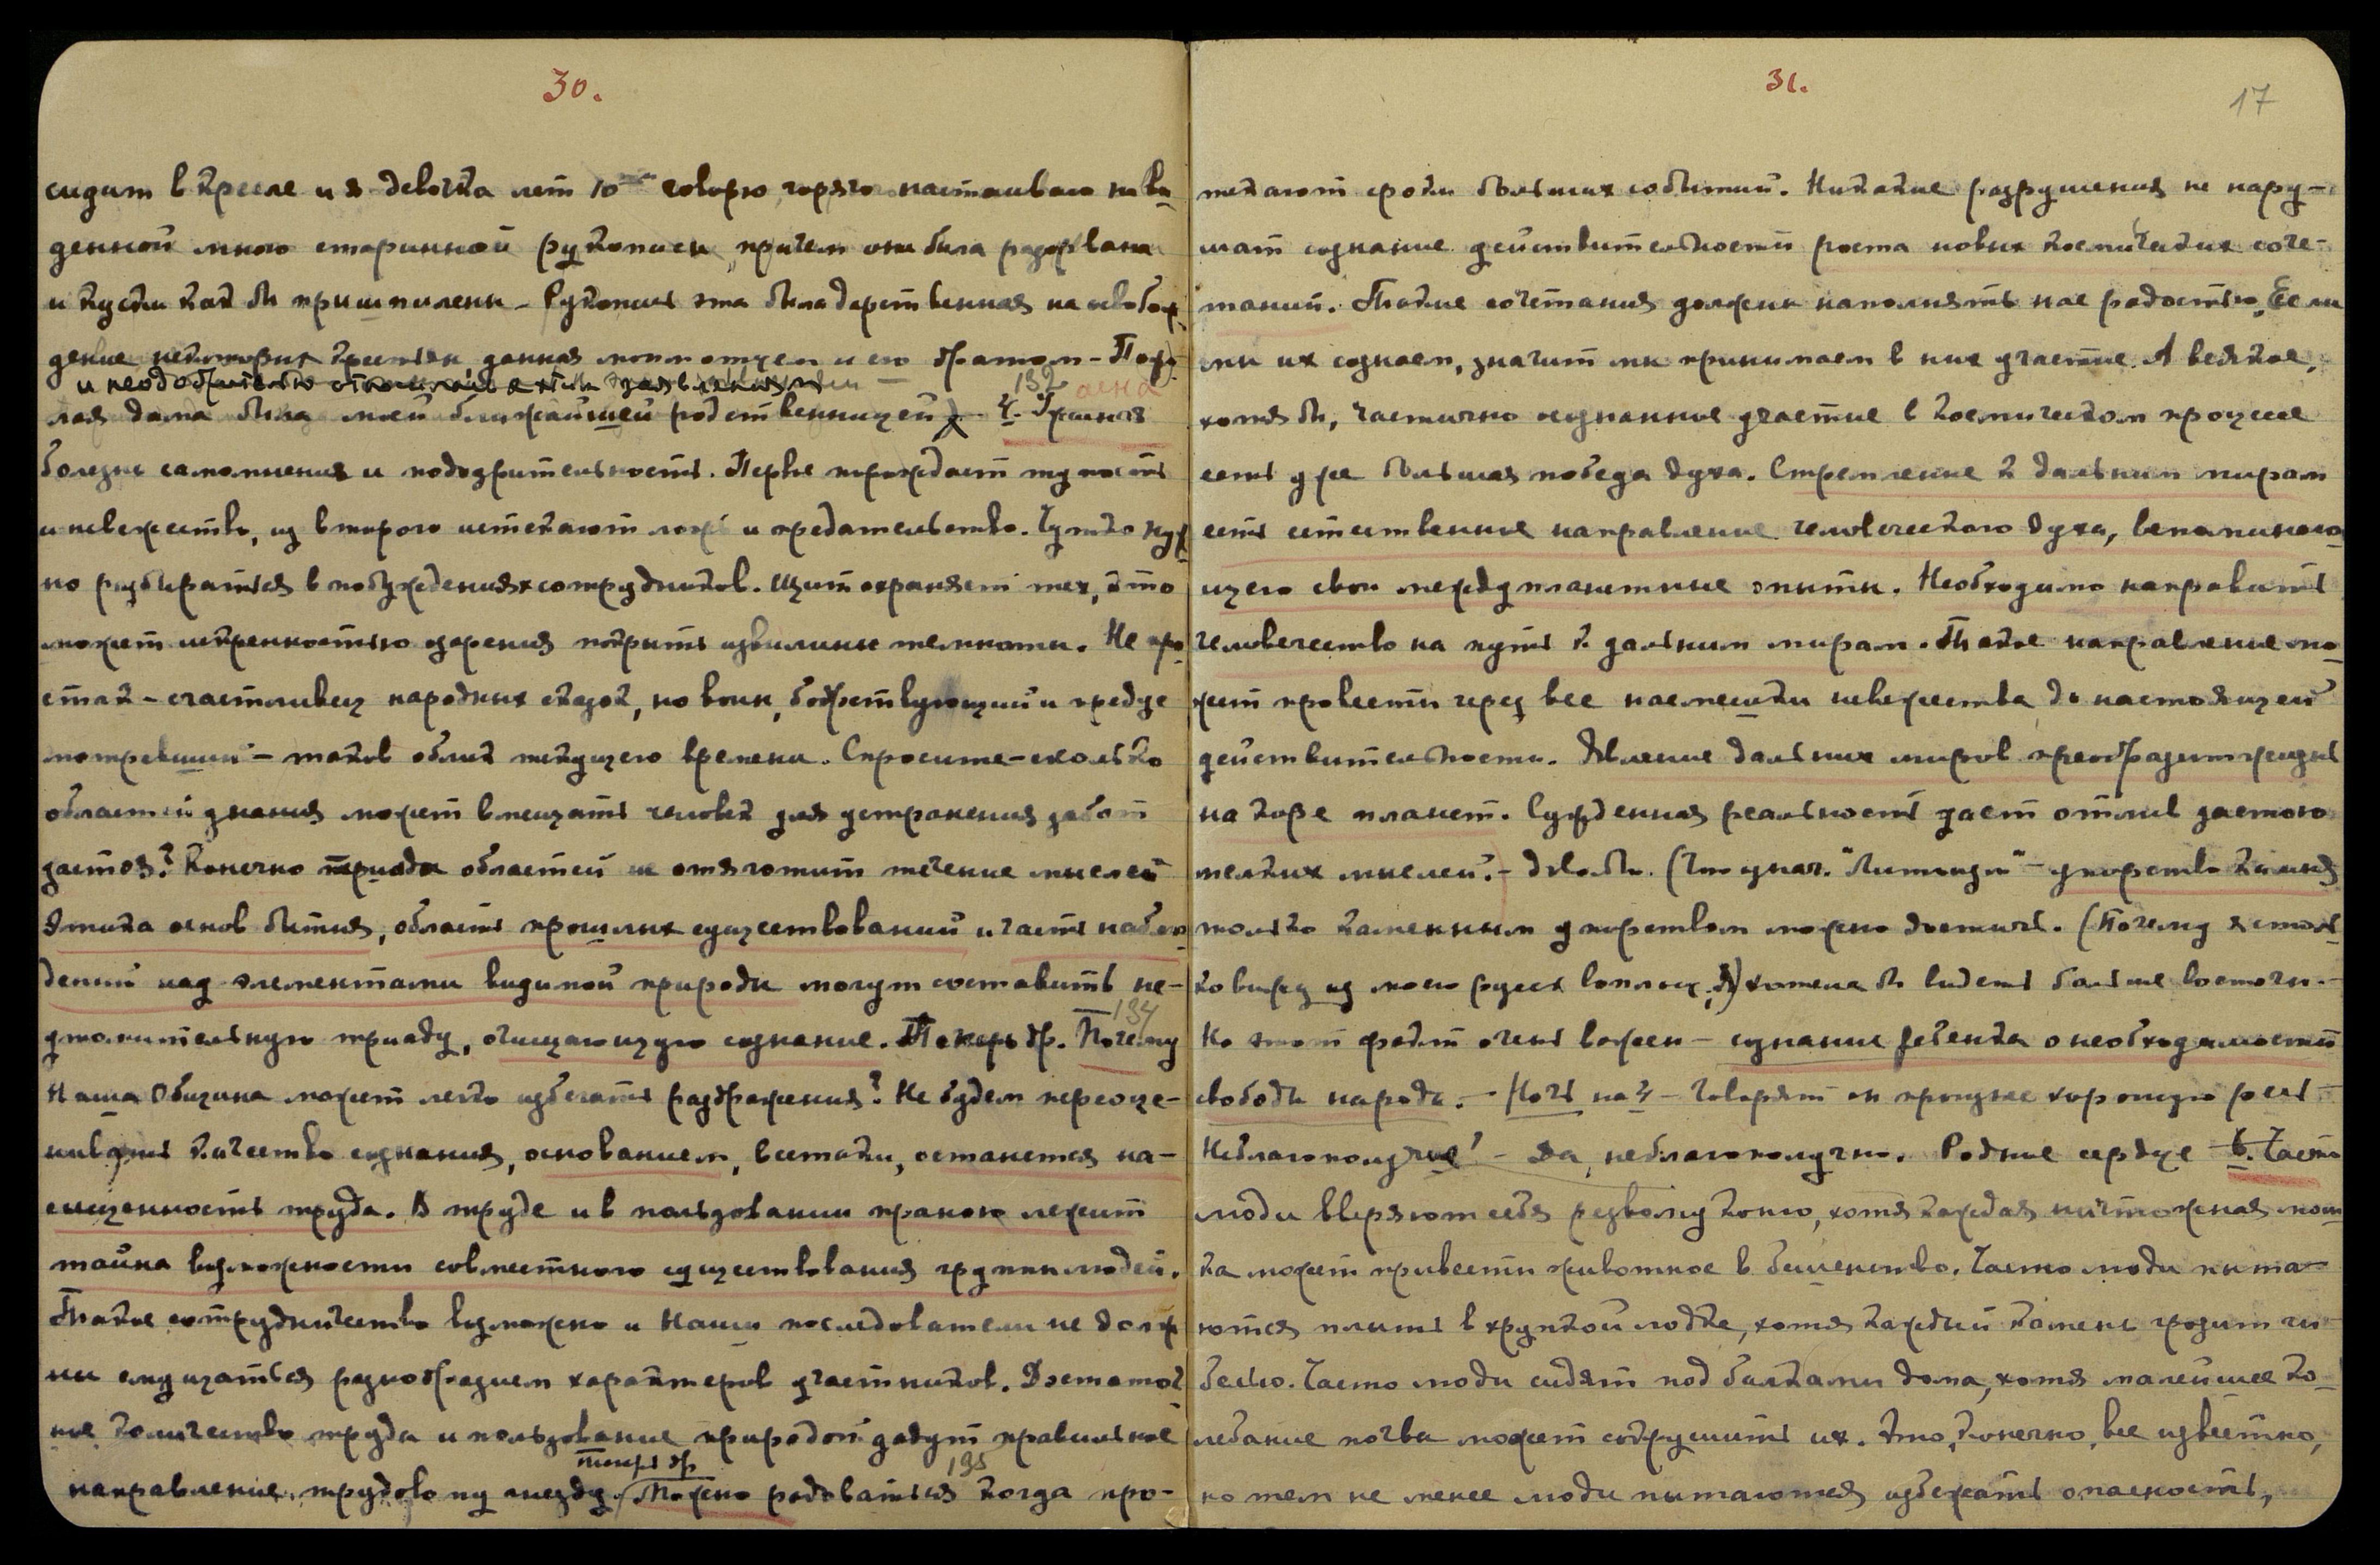 30.
сидит в кресле и я девочка лет 10 говорю, горячо настаиваю на ви-
денной мною старинной рукописи, причем она была разорвана
и куски как бы пришпилены – Рукопись эта была дарственная на освобож-
дение некоторых крестьян данная моим отцем и его братом – Пожи-
и неодобрительно относилась к этим
132
лая дама была моей ближайшей родственницей – 4. Ужасна
болезнь самомнения и подозрительность. Первое порождает тупость
и невежество, из второго истекают ложь и предательство. Чутко нуж-
но разбираться в побуждениях сотрудников. Щит охраняет тех, кто
может искренностью озарения покрыть извилины темноты. Не про-
стак – счастливец народных сказок, но воин, бодрствующий и предус-
мотревший – таков облик текущего времени. Спросите – сколько
областей знания может вмещать человек для устранения забот
застоя? Конечно триада областей не отяготит течение мыслей
Этика основ бытия, область прошлых существований и часть наблю-
дений над элементами видимой природы могут составить не-
134
утомительную триаду, очищающую сознание. Теперь др. Почему
Наша Община может легко избегать раздражения? Не будем переоце-
нивать качество сознания, основанием, всетаки, останется на-
сыщенность труда. В труде и в пользовании праною лежит
тайна возможности совместного существования группы людей.
Такое сотрудничество возможно и Наши последователи не долж-
ны смущаться разнообразием характеров участников. Достаточ-
ное количество труда и пользование природой дадут правильное
теперь др
135
направление трудовому гнезду. Можно радоваться когда про-
31.
17
текают сроки больших событий. Никакие разрушения не нару-
шат сознание действительности роста новых космических соче-
таний. Такие сочетания должны наполнять нас радостью. Если
мы их сознаем, значит мы принимаем в них участие. А всякое,
хотя бы, частично осознанное участие в космическом процессе
есть уже большая победа духа. Стремление к дальним мирам
есть естественное направление человеческого духа, вспоминаю-
щего свои междупланетные опыты. Необходимо направить
человечество на путь к дальним мирам. Такое направление мо-
жет провести через все насмешки невежества до настоящей
действительности. Явление дальних миров преобразит жизнь
на коре планет. Сужденная реальность дает отлив застою
мелких мыслей. – Довольно. (Что означ. – упорство камня
только каменным упорством можно достичь. (Почему я столь-
ко вижу из моего русск воплощ, я) хотела бы видеть больше восточн. –
Но этот факт очень важен – сознание ребенка о необходимости
свободы народа. – Ночь на 4 – Говорят он произнес хорошую речь –
Неблагополучие! – Да, неблагополучно. Родное сердце 6. Часто
люди вверяют себя резвому коню, хотя каждая ничтожная мош-
ка может привести животное в бешенство. Часто люди пыта-
ются плыть в хрупкой лодке, хотя каждый камень грозит ги-
белью. Часто люди сидят под балками дома, хотя малейшее ко-
лебание почвы может сокрушить их. Это, конечно, все известно,
но тем не менее люди пытаются избежать опасность,